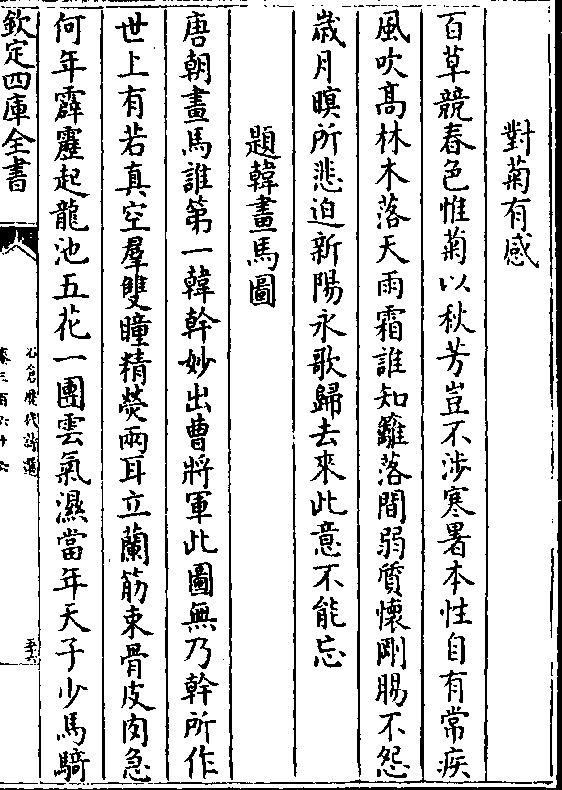 對菊有感
百草競春色惟菊以秋芳豈不涉寒暑本性自有常疾
風吹髙林木落天雨霜誰知籬落間弱質懷剛腸不怨
歳月暝所悲迫新陽永歌歸去來此意不能忘
題韓畫馬圖
唐朝畫馬誰第一韓幹妙出曹將軍此圖無乃幹所作
世上有若真空羣雙瞳精熒兩耳立蘭筋束骨皮肉急
何年霹靂起龍池五花一團雲氣濕當年天子少馬騎
欽定四庫全書
石倉歷代詩選
卷三百六十六